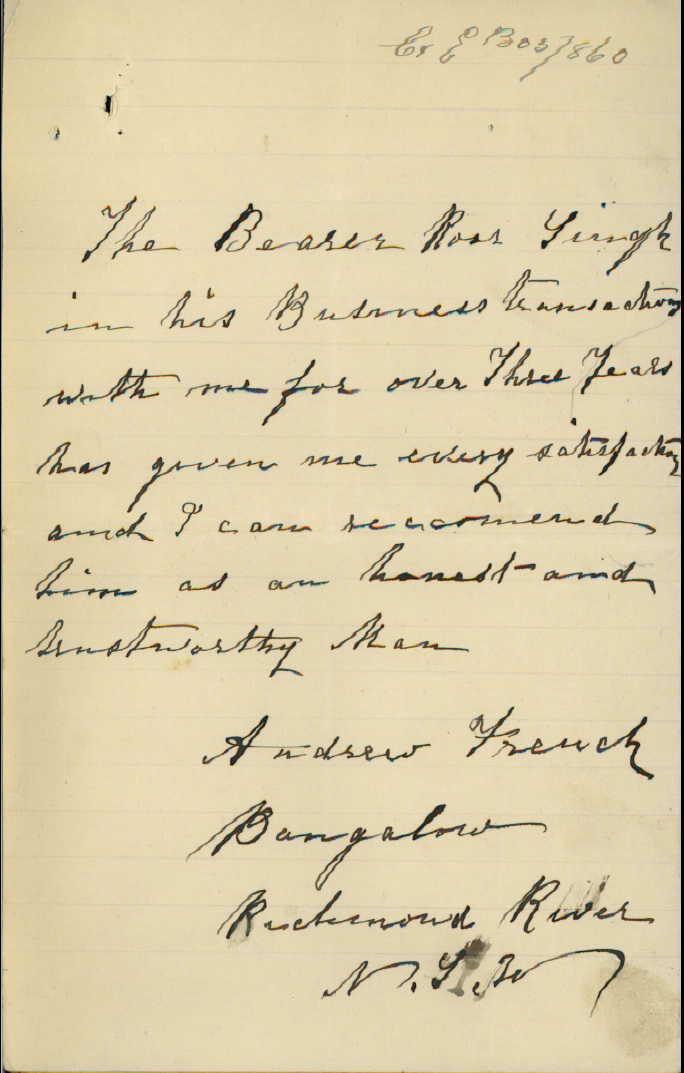 The Bearer Roor Singh
in his Business transactions
with me for over Three Years
has given me every satisfaction
and I can reccomend
him as an honest and
trustworthy Man
Andrew French
Bangalow
Richmond River
N.S.W